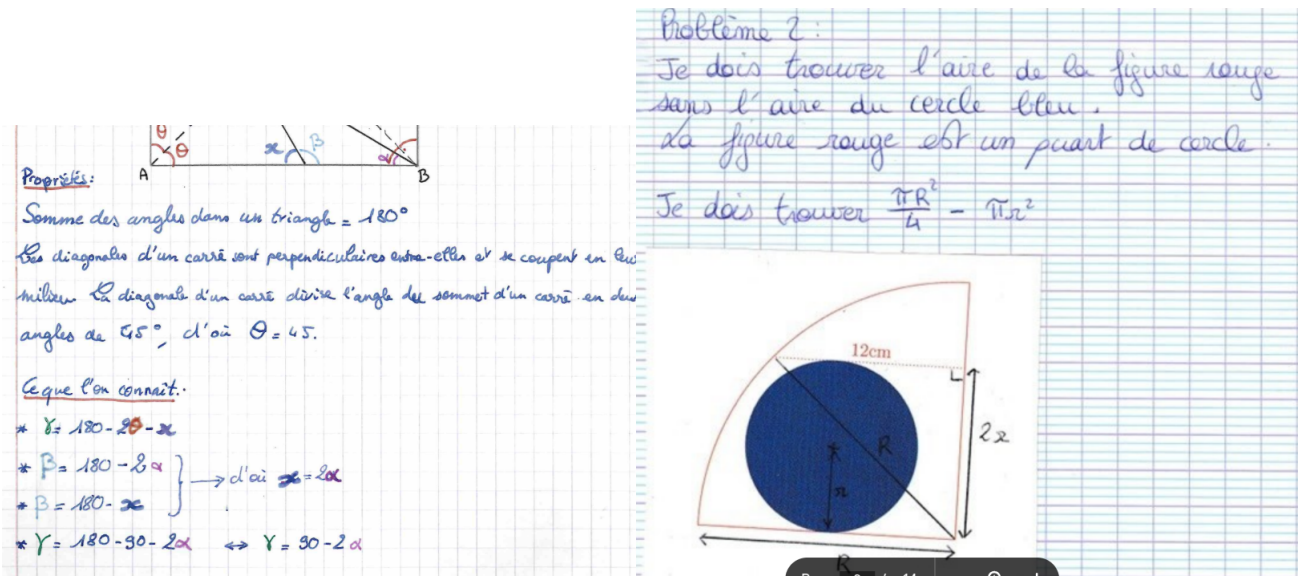 θ
θ
x
β
α
A
B
Propriétés:
Somme des angles dans un triangle = 180°
Les diagonales d'un carré sont perpendiculaires entre-elles et se coupent en leur
milieu. La diagonale d'un carré divise l'angle du sommet d'un carré en deux
angles de 45°, d'où θ = 45.
Ce que l'on connait:
* γ = 180 - 2θ - x
* β = 180 - 2α
→ d'où x = 2α
* β = 180 - x
* γ = 180 - 90 - 2α ⇔ γ = 90 - 2α
Problème 2 :
Je dois trouver l'aire de la figure rouge
sans l'aire du cercle bleu.
La figure rouge est un quart de cercle.
Je dois trouver πR²/4 - πr²
12cm
2r
R
r
R